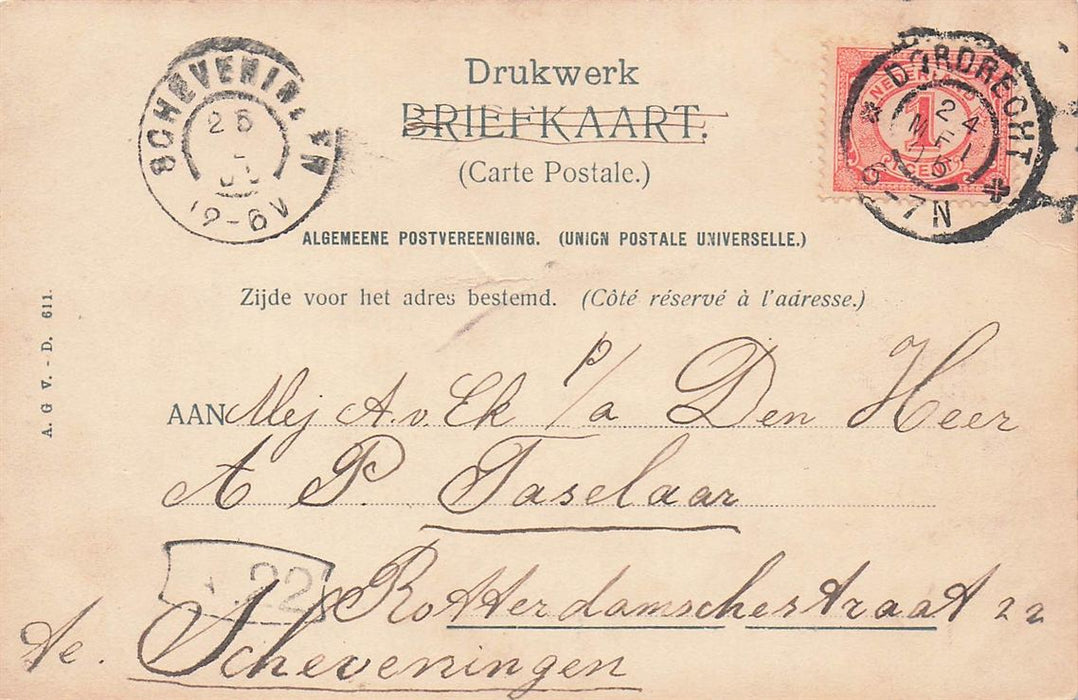 Drukwerk
BRIEFKAART.
(Carte Postale.)
ALGEMEENE POSTVEREENIGING. (UNION POSTALE UNIVERSELLE.)
Zijde voor het adres bestemd. (Côté réservé à l'adresse.)
AAN Mej A. v. Ek p/a Den Heer
A P. Taselaar
Rotterdamschestraat 22
te. Scheveningen
A. G V. - D. 611.
SCHEVENIN
25
12-6V
N4
DORDRECHT
24
MEI
6-7N
NEDER
1
CE
22